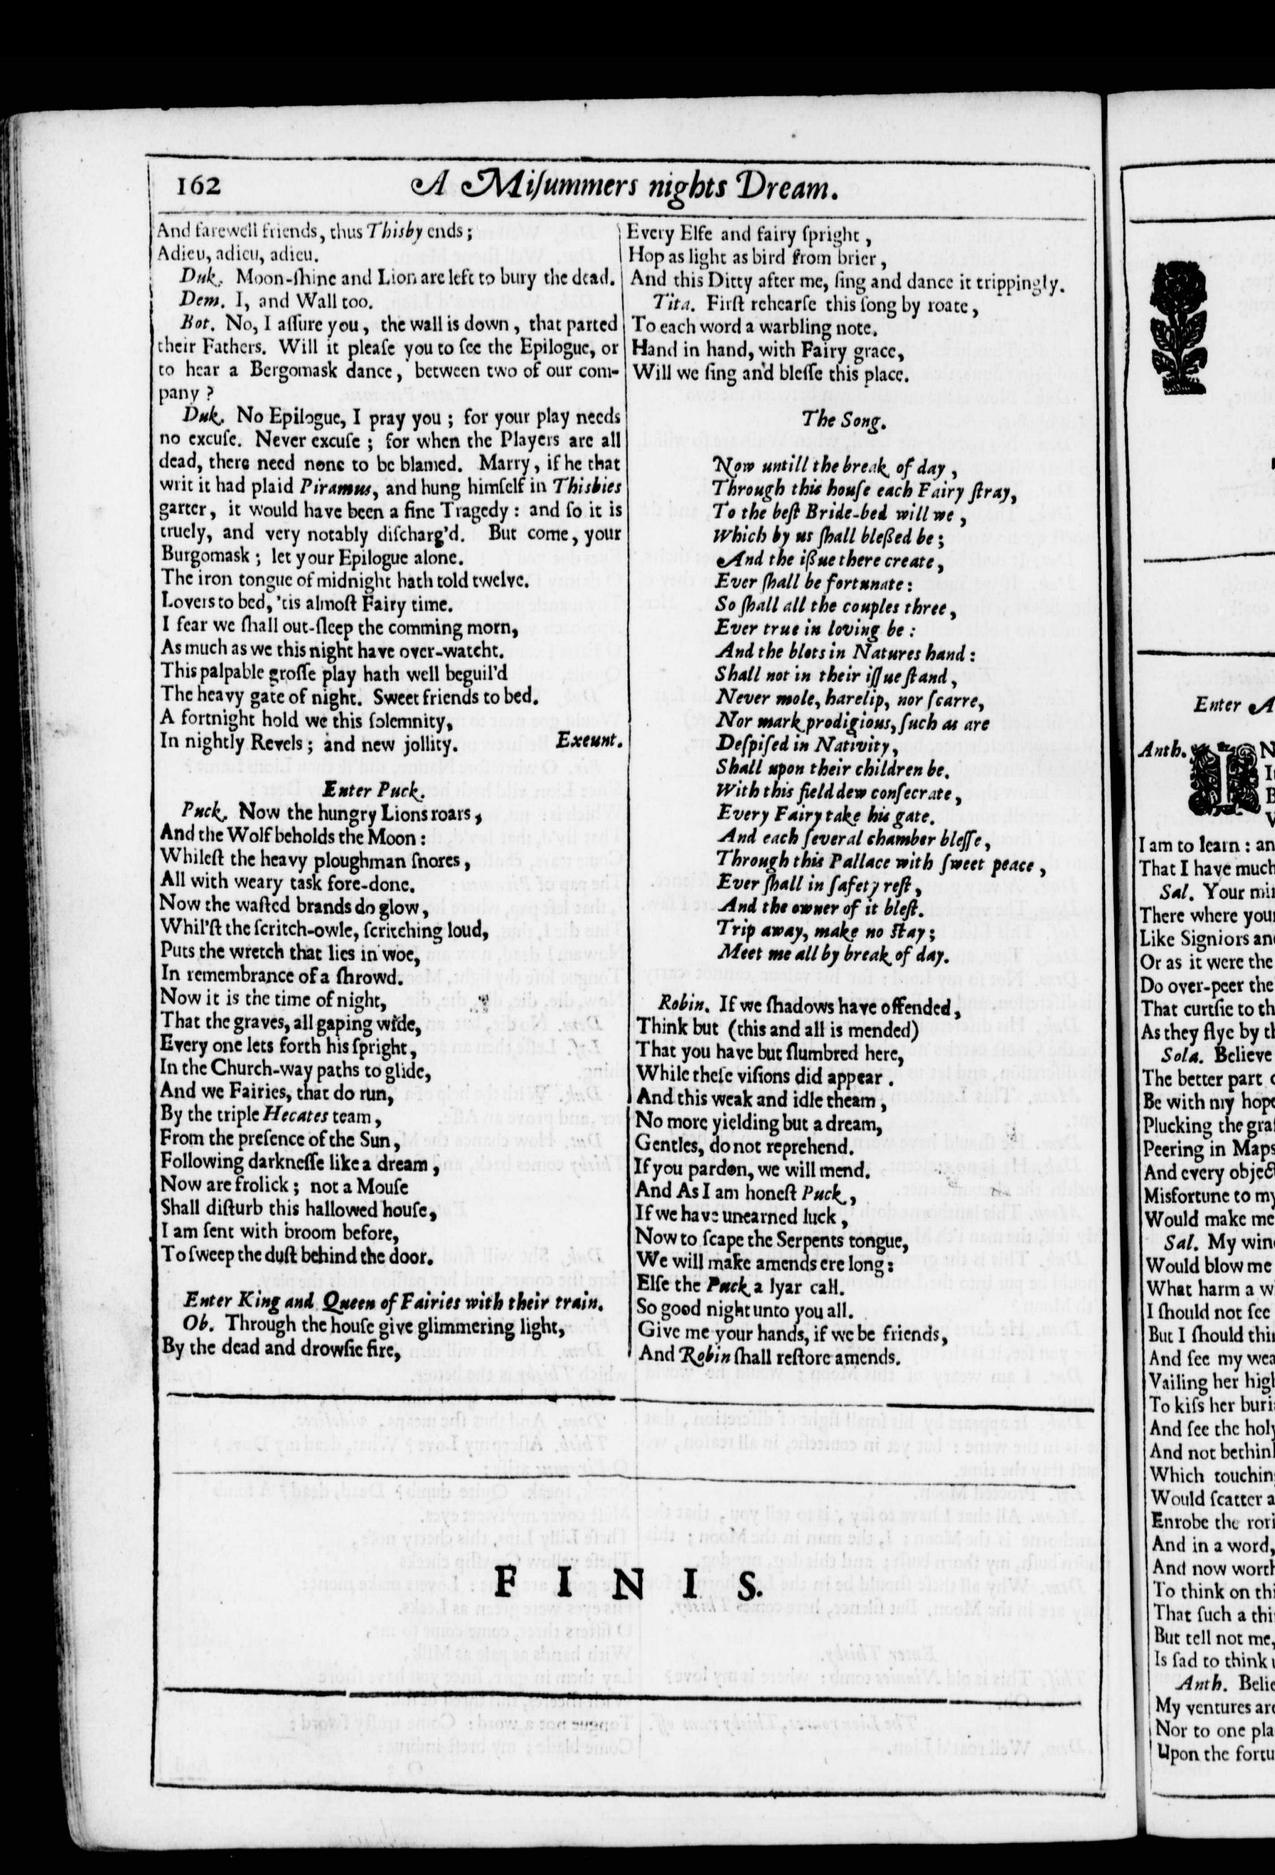 162
A Miſummers nights Dream.
And farewell friends, thus Thisby ends;
Adieu, adieu, adieu.
Duk. Moon-ſhine and Lion are left to bury the dead.
Dem. I, and Wall too.
Bot. No, I aſſure you, the wall is down, that parted
their Fathers. Will it pleaſe you to ſee the Epilogue, or
to hear a Bergomask dance, between two of our com-
pany?
Duk. No Epilogue, I pray you; for your play needs
no excuſe. Never excuſe; for when the Players are all
dead, there need none to be blamed. Marry, if he that
writ it had plaid Piramus, and hung himſelf in Thisbies
garter, it would have been a fine Tragedy: and ſo it is
truely, and very notably diſcharg'd. But come, your
Burgomask; let your Epilogue alone.
The iron tongue of midnight hath told twelve.
Lovers to bed, 'tis almoſt Fairy time.
I fear we ſhall out-ſleep the comming morn,
As much as we this night have over-watcht.
This palpable groſſe play hath well beguil'd
The heavy gate of night. Sweet friends to bed.
A fortnight hold we this ſolemnity,
In nightly Revels; and new jollity. Exeunt.
Enter Puck.
Puck. Now the hungry Lions roars,
And the Wolf beholds the Moon:
Whileſt the heavy ploughman ſnores,
All with weary task fore-done.
Now the waſted brands do glow,
Whil'ſt the ſcritch-owle, ſcritching loud,
Puts the wretch that lies in woe,
In remembrance of a ſhrowd.
Now it is the time of night,
That the graves, all gaping wide,
Every one lets forth his ſpright,
In the Church-way paths to glide,
And we Fairies, that do run,
By the triple Hecates team,
From the preſence of the Sun,
Following darkneſſe like a dream,
Now are frolick; not a Mouſe
Shall diſturb this hallowed houſe,
I am ſent with broom before,
To ſweep the duſt behind the door.
Enter King and Queen of Fairies with their train.
Ob. Through the houſe give glimmering light,
By the dead and drowſie fire,
Every Elfe and fairy ſpright,
Hop as light as bird from brier,
And this Ditty after me, ſing and dance it trippingly.
Tita. Firſt rehearſe this ſong by roate,
To each word a warbling note.
Hand in hand, with Fairy grace,
Will we ſing and bleſſe this place.
The Song.
Now untill the break of day,
Through this houſe each Fairy ſtray,
To the beſt Bride-bed will we,
Which by us ſhall bleßed be;
And the ißue there create,
Ever ſhall be fortunate:
So ſhall all the couples three,
Ever true in loving be:
And the blots in Natures hand:
Shall not in their iſſue ſtand,
Never mole, harelip, nor ſcarre,
Nor mark prodigious, ſuch as are
Deſpiſed in Nativity,
Shall upon their children be.
With this field dew conſecrate,
Every Fairy take his gate.
And each ſeveral chamber bleſſe,
Through this Pallace with ſweet peace,
Ever ſhall in ſafety reſt,
And the owner of it bleſt.
Trip away, make no ſtay;
Meet me all by break of day.
Robin. If we ſhadows have offended,
Think but (this and all is mended)
That you have but ſlumbred here,
While theſe viſions did appear.
And this weak and idle theam,
No more yielding but a dream,
Gentles, do not reprehend.
If you pardon, we will mend.
And As I am honeſt Puck,
If we have unearned luck,
Now to ſcape the Serpents tongue,
We will make amends ere long:
Elſe the Puck a lyar call.
So good night unto you all.
Give me your hands, if we be friends,
And Robin ſhall reſtore amends.
FINIS.
Enter A
Anth. IN
I am to learn: an
That I have much
Sal. Your min
There where your
Like Signiors and
Or as it were the
Do over-peer the
That curtſie to th
As they flye by th
Sola. Believe
The better part o
Be with my hope
Plucking the graſ
Peering in Maps
And every object
Misfortune to my
Would make me
Sal. My wind
Would blow me
What harm a w
I ſhould not ſee
But I ſhould thin
And ſee my wea
Vailing her high
To kiſs her buri
And ſee the holy
And not bethink
Which touching
Would ſcatter a
Enrobe the rori
And in a word,
And now worth
To think on thi
That ſuch a thi
But tell not me,
Is ſad to think u
Anth. Belie
My ventures are
Nor to one pla
Upon the fortu